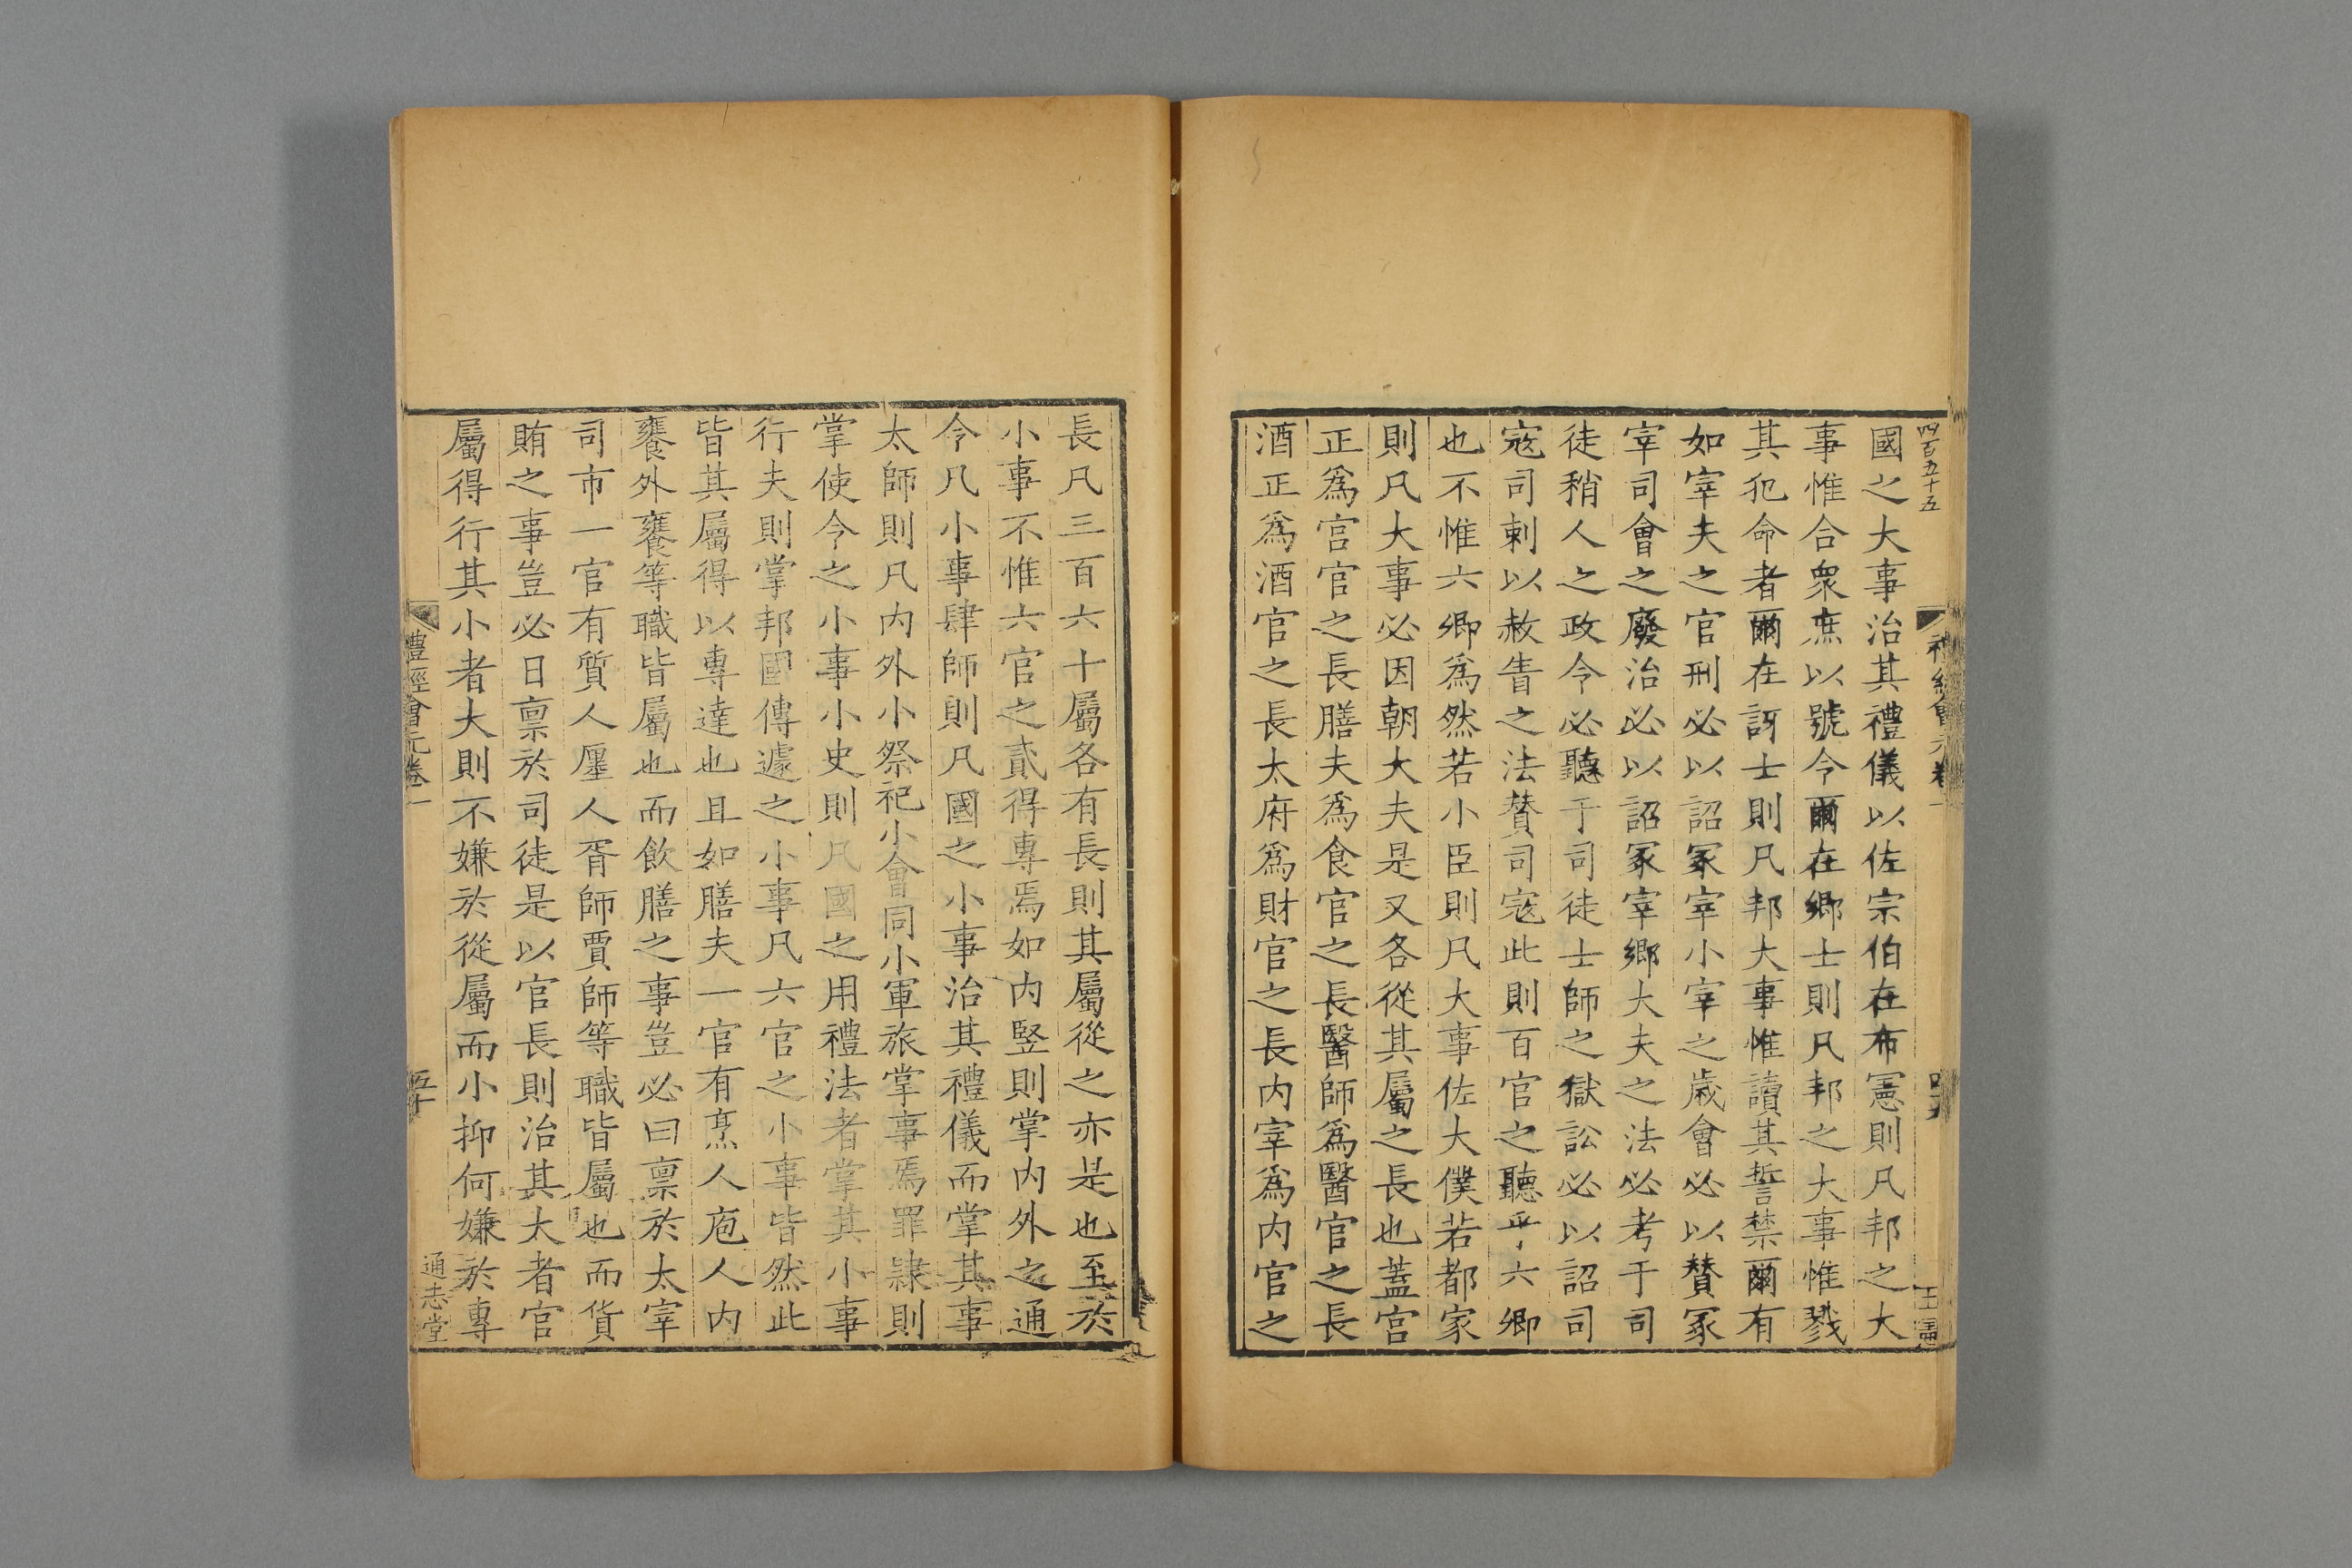 四百五十五
國之大事治其禮儀以佐宗伯在布憲則凡邦之大
事惟合衆庶以號令爾在鄉士則凡邦之大事惟戮
其犯命者爾在訝士則凡邦大事惟讀其誓禁爾有
如宰夫之官刑必以詔冢宰小宰之歲會必以贊冢
宰司會之廢治必以詔冢宰鄉大夫之法必考于司
徒稍人之政令必聽于司徒士師之獄訟必以詔司
寇司刺以赦眚之法贊司寇此則百官之聽乎六卿
也不惟六卿爲然若小臣則凡大事佐大僕若都家
則凡大事必因朝大夫是又各從其屬之長也蓋宫
正爲宫官之長膳夫爲食官之長醫師爲醫官之長
酒正爲酒官之長太府爲財官之長内宰爲内官之
長凡三百六十屬各有長則其屬從之亦是也至於
小事不惟六官之貳得專焉如内竪則掌内外之通
令凡小事肆師則凡國之小事治其禮儀而掌其事
太師則凡内外小祭祀小會同小軍旅掌事焉罪隷則
掌使令之小事小史則凡國之用禮法者掌其小事
行夫則掌邦國傳遽之小事凡六官之小事皆然此
皆其屬得以專達也且如膳夫一官有烹人庖人内
饔外饔等職皆屬也而飲膳之事豈必曰禀於太宰
司市一官有質人廛人胥師賈師等職皆屬也而貨
賄之事豈必日禀於司徒是以官長則治其大者官
屬得行其小者大則不嫌於從屬而小抑何嫌於專
禮經會元卷一
五十
通志堂